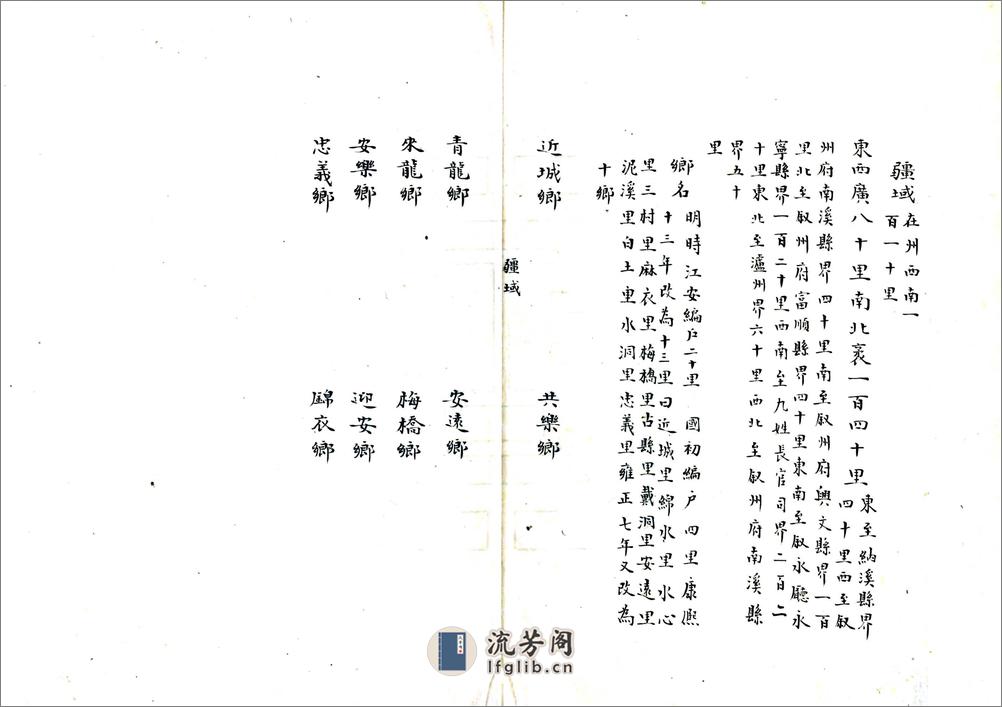 疆域在州西南一
百一十里
東西廣八十里南北袤一百四十里東至納溪縣界
四十里西至敘
州府南溪縣界四十里南至敘州府興文縣界一百
里北至敘州府富順縣界四十里東南至敘永廳永
寧縣界一百二十里西南至九姓長官司界二百二
十里東北至瀘州界六十里西北至敘州府南溪縣
界五十
里
鄉名 明時江安編戶二十里 國初編戶四里康熙
十三年改為十三里曰近城里綿水里水心
里三村里麻衣里梅橋里古縣里戴洞里安遠里
泥溪里白土里水洞里忠義里雍正七年又改為
十鄉
近城鄉 共樂鄉
疆域
青龍鄉 安遠鄉
來龍鄉 梅橋鄉
安樂鄉 迎安鄉
忠義鄉 錦衣鄉
流芳阁
lfglib.cn